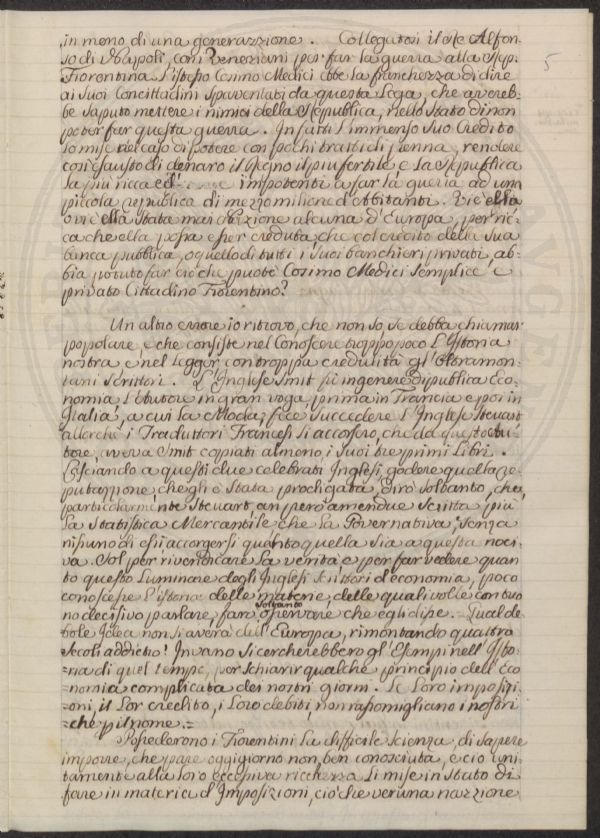 in meno di una generazzione. Collegatosi il Re Alfon-
so di Napoli, coni Veneziani per far la guerra alla Rep.
Fiorentina l'istesso Cosmo Medici ebbe la franchezza di dire
ai suoi Concittadini spaventati da questa Lega, che avereb-
be saputo mettere i nimici della Republica, nello Stato di non
poter far questa guerra. In fatti l'immenso suo Credito
lo mise nel caso di potere con pochi tratti di penna, rendere
così esausto di denaro il Regno il più fertile e la Republica
la più ricca ed impotenti a far la guerra ad una
piccola republica di mezzo milione d'Abbitanti. Vi è ella
o vi è ella stata mai Nazione alcuna d'Europa, per ric-
ca che ella possa esser creduta, che col credito della sua
banca pubblica, o quello di tutti i suoi banchieri privati, ab-
bia potuto far ciò che puotè Cosimo Medici semplice e
privato Cittadino Fiorentino?
Un altro errore io ritrovo, che non so, se debba chiamar
popolare, e che consiste nel Conoscere troppo poco l'Istoria
nostra e nel Legger con troppa credulità gl'Oltramon-
tani scrittori. L'Inglese Smit fù in genere di publica Eco-
nomia l'Autore in gran voga, prima in Francia e poi in
Italia, a cui la Moda, fece succedere l'Inglese Steuart
allorchè i Traduttori Francesi si accorsero, che da questo Au-
tore, aveva Smit copiati almeno, i suoi tre primi Libri.
Lasciando a questi due celebrati Inglesi godere quella re-
putazzione che gli è stata prodigata, dirò soltanto, che
particolarmente Steuart, an però amendue scritta più
la Statistica Mercantile che la Governativa, senza
nissuno di essi accorgersi quanto quella sia a questa noci-
va. Sol per rivendicare la verità e per far vedere quan
to questo Luminare degli Inglesi Scrittori d'economia, poco
conoscesse l'istoria delle materie, delle quali volle con tuo
no decisivo parlare, farò soltanto osservare, che egli disse. Qual de
bole Idea non si averà dell'Europa, rimontando quattro
secoli addietro! In vano si cercherebbero gl'Esempi nell'Isto-
ria di quel tempo, per schiarir qualche principio dell'Eco
=nomia complicata dei nostri giorni. Le Loro imposizi-
=oni, il Lor credito, i Loro debiti, non rassomigliano i nostri
=che p il nome.=
Possederono i Fiorentini la difficile scienza, di sapere
imporre, che pare oggigiorno non ben conosciuta, e ciò uni-
tamente alla loro eccessiva ricchezza li mise in stato di
fare in materia d'Imposizioni, ciò che veruna nazzione
5